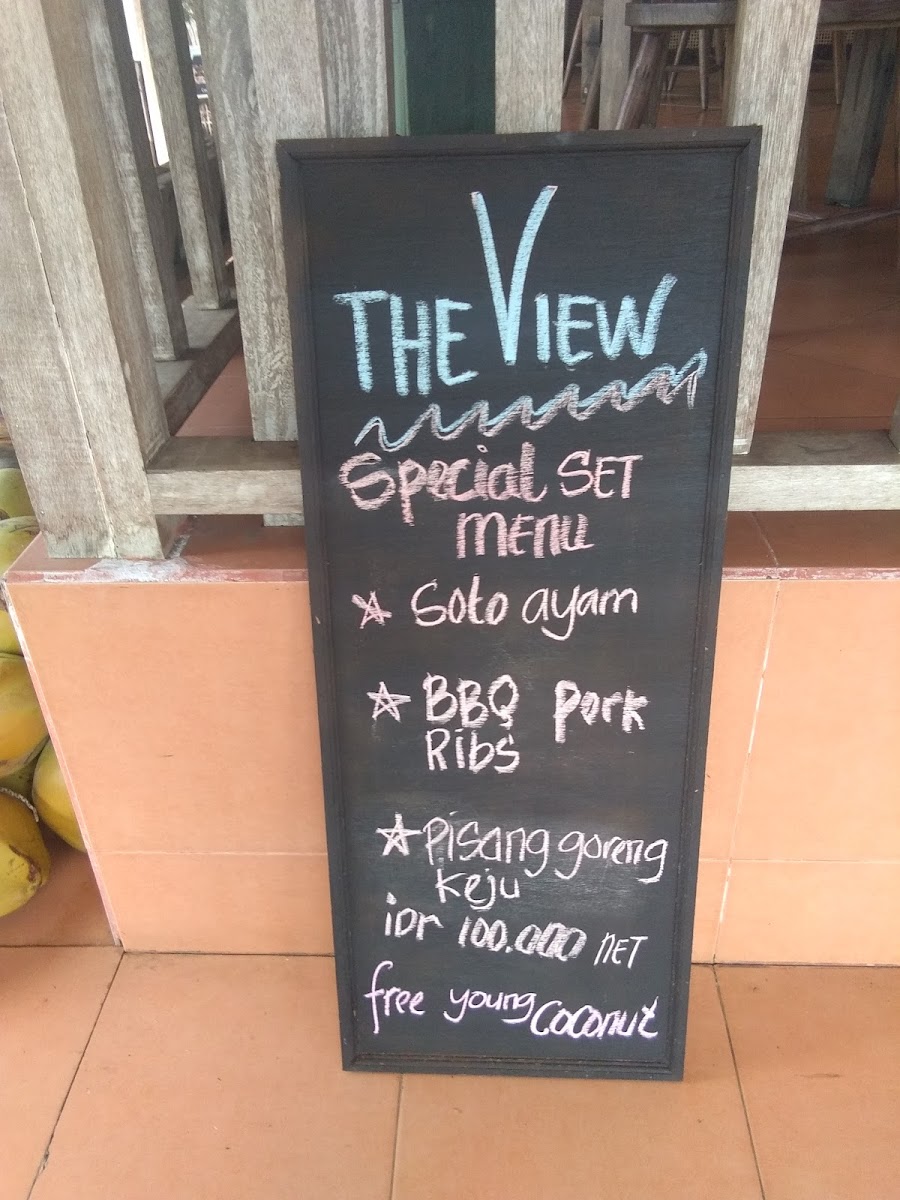 THE VIEW
Special SET
MENU
Soto ayam
BBQ Pork
Ribs
Pisang goreng
keju
iDr 100.000 NET
free young coconut